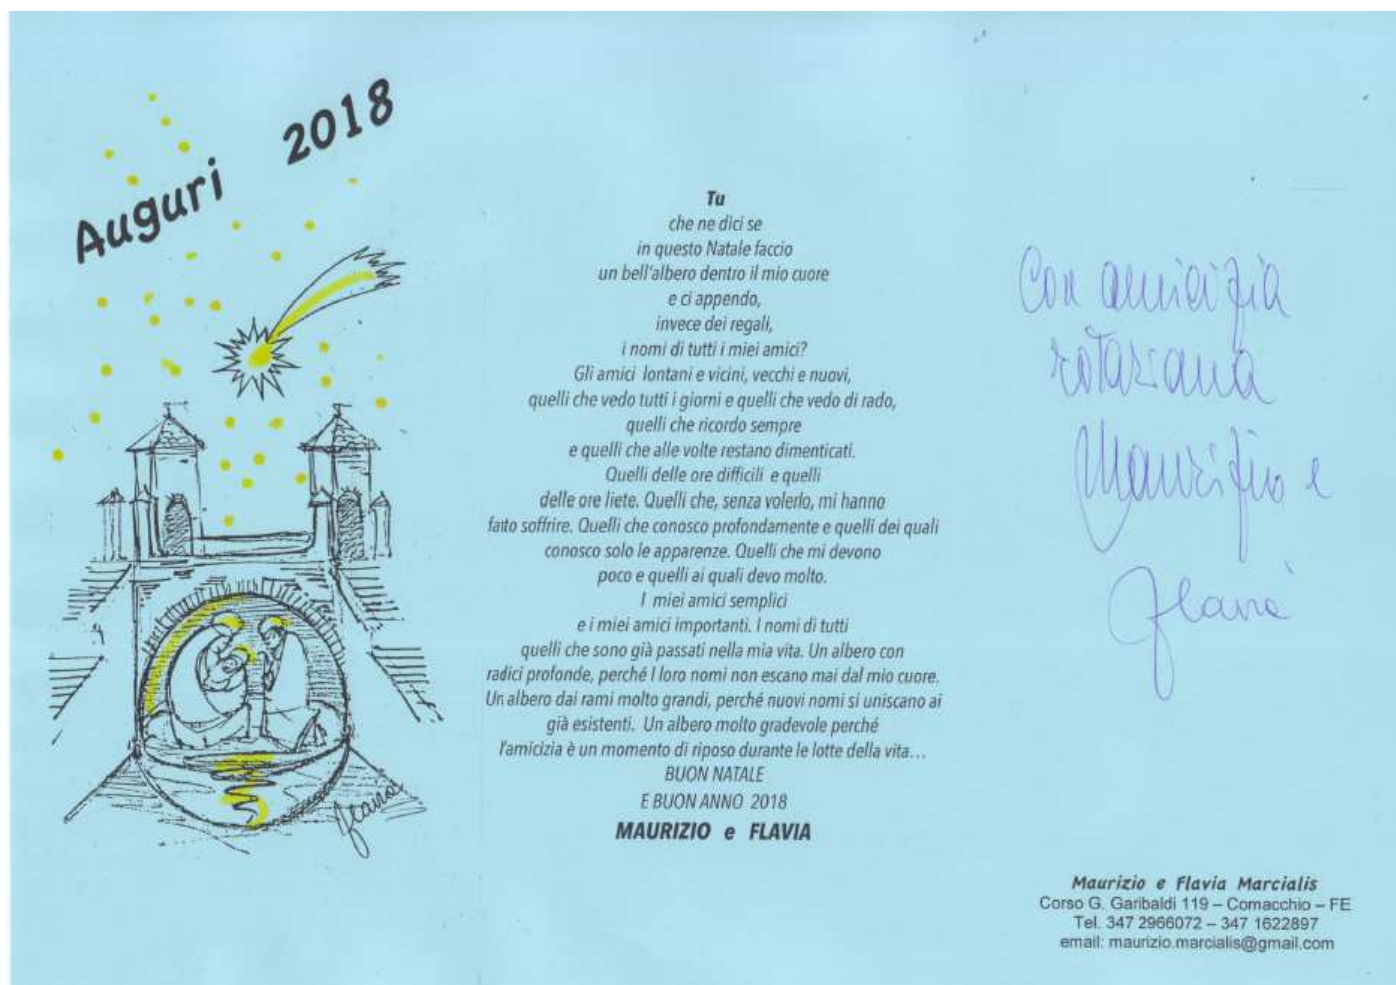 Auguri 2018
Flavia
Tu
che ne dici se
in questo Natale faccio
un bell'albero dentro il mio cuore
e ci appendo,
invece dei regali,
i nomi di tutti i miei amici?
Gli amici lontani e vicini, vecchi e nuovi,
quelli che vedo tutti i giorni e quelli che vedo di rado,
quelli che ricordo sempre
e quelli che alle volte restano dimenticati.
Quelli delle ore difficili e quelli
delle ore liete. Quelli che, senza volerlo, mi hanno
fatto soffrire. Quelli che conosco profondamente e quelli dei quali
conosco solo le apparenze. Quelli che mi devono
poco e quelli ai quali devo molto.
I miei amici semplici
e i miei amici importanti. I nomi di tutti
quelli che sono già passati nella mia vita. Un albero con
radici profonde, perché I loro nomi non escano mai dal mio cuore.
Un albero dai rami molto grandi, perché nuovi nomi si uniscano ai
già esistenti. Un albero molto gradevole perché
l'amicizia è un momento di riposo durante le lotte della vita…
BUON NATALE
E BUON ANNO 2018
MAURIZIO e FLAVIA
Con amicizia
rotariana
Maurizio e
Flavia
Maurizio e Flavia Marcialis
Corso G. Garibaldi 119 – Comacchio – FE
Tel. 347 2966072 – 347 1622897
email: maurizio.marcialis@gmail.com